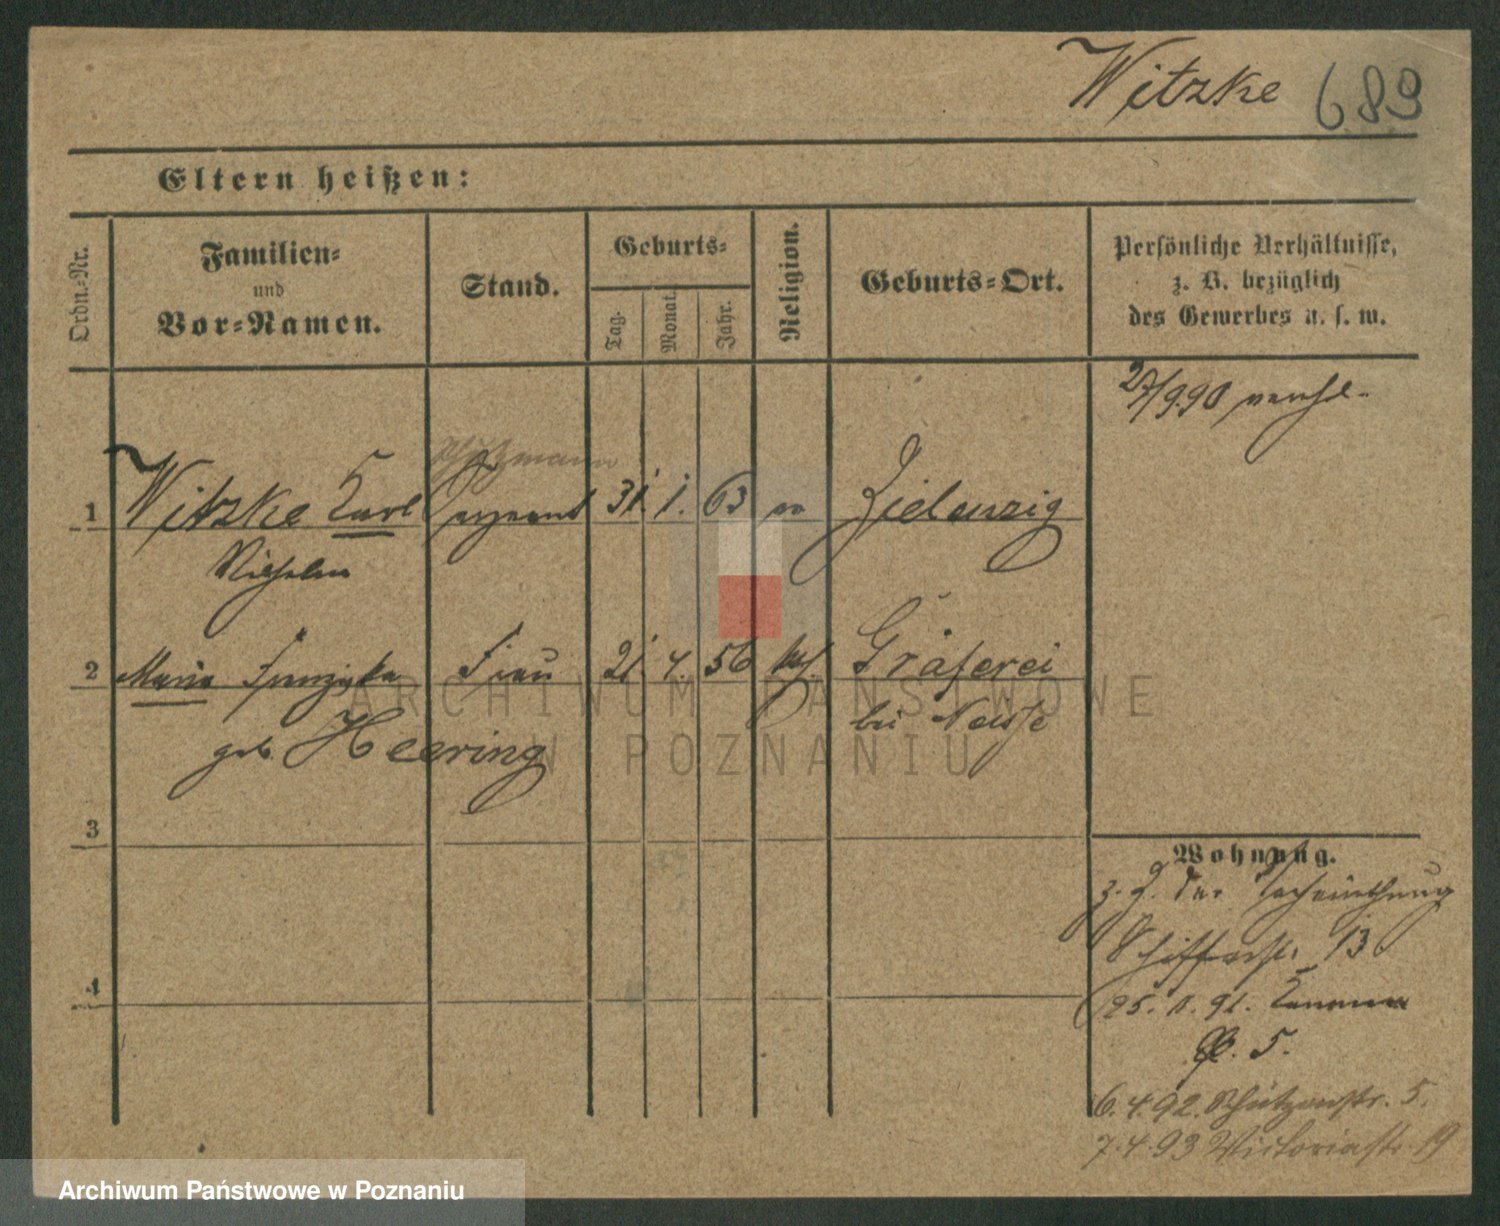 Witzke 689
Eltern heißen:
Ordn.-Nr.
Familien-
und
Vor-Namen.
Stand.
Geburts-
Tag.
Monat.
Jahr.
Religion.
Geburts-Ort.
Persönliche Verhältnisse,
z. B. bezüglich
des Gewerbes u. s. w.
27/9.90
Schutzmann
1 Witzke Karl Sergeant 31. 1. 63 ev Zielenzig
Wilhelm
2 Maria Franziska Frau 21. 4. 56 kath. Gräferei
bei Neisse
geb. Heering
3
4
Wohnung.
z. Z. der
Schifferstr. 13
5.
6.4.92. Schützenstr. 5.
7.4.93 Victoriastr. 19
ARCHIWUM PAŃSTWOWE
W POZNANIU
Archiwum Państwowe w Poznaniu